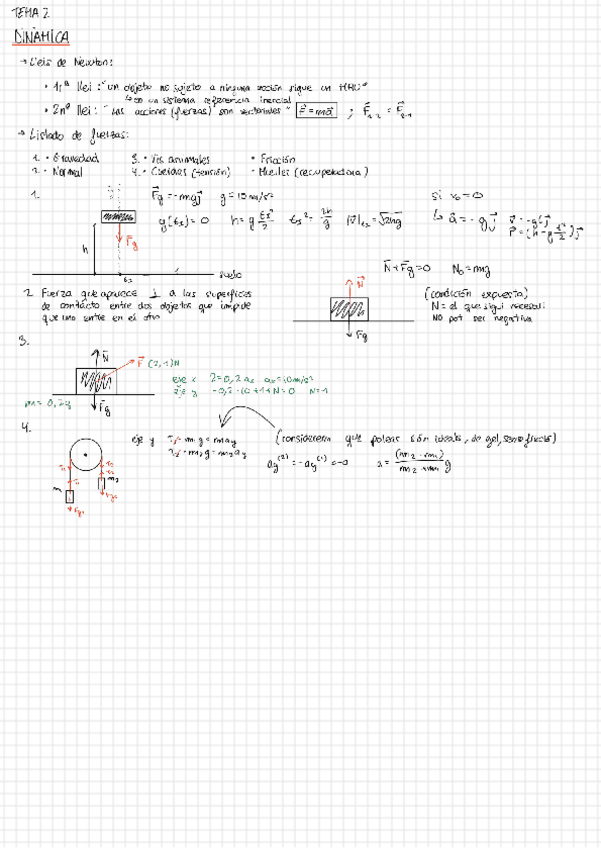 TEMA 2
DINÀMICA
→ Lleis de Newton:
• 1ra llei: "un objeto no sujeto a ninguna acción sigue un MRU"
↳ en un sistema referencia inercial
• 2na llei: "Las acciones (fuerzas) son vectoriales" F⃗ = ma⃗ ; F⃗1-2 = F⃗2-1
→ Listado de fuerzas:
1. • Gravedad 3. • Vis animales • Fricción
2. • Normal 4. • Cuerdas (tensión) • Muelles (recuperadora)
1. F⃗g = -mgj⃗ g = 10 m/s² si v0 = 0
F⃗g h y(ts) = 0 h = g ts²/2 ts² = 2h/g |v⃗|ts = √2hg ↳ a⃗ = -gj⃗
ts suelo
N⃗ + F⃗g = 0 N0 = mg
2. Fuerza que aparece ⊥ a las superficies
de contacto entre dos objetos que impide
que uno entre en el otro
N⃗ Fg
(condición expuesta)
N = el que sigui necesari
NO pot ser negativa
3.
N⃗ F⃗ (2,1)N
F⃗g
m = 0,2g
eje x 2 = 0,2 ax ax = 10 m/s²
eje y -0,2·10 + 1 + N = 0 N = 1
4.
eje y
(consideramos que poleas són ideals, de gel,
m1 m2
ay(2) = -ay(1)